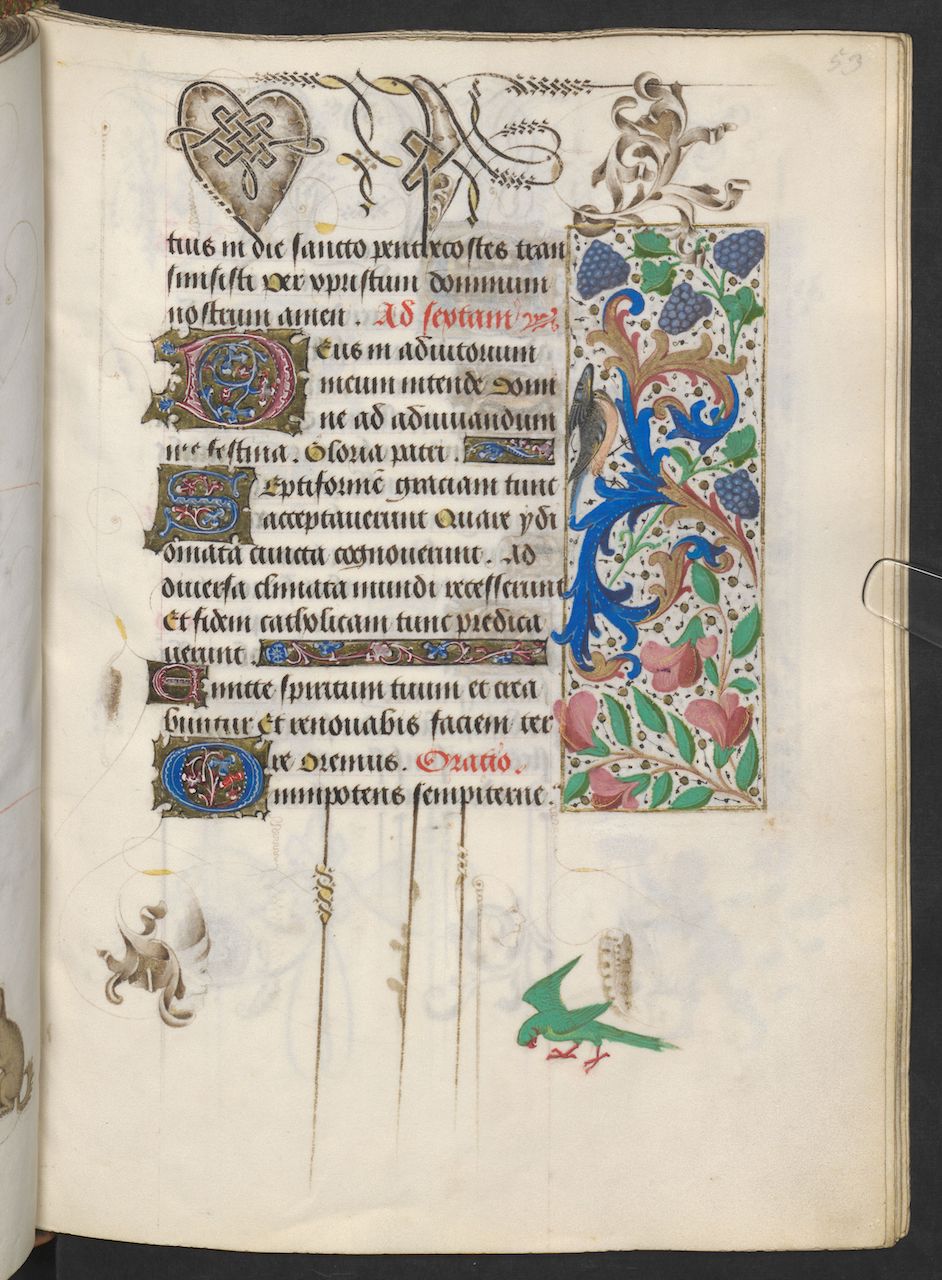 53
tius in die sancto pentecostes tran
smisisti Per xpristum dominum
nostrum amen. Ad septam
Deus in adiutorium
meum intende Domi
ne ad adiuuandum
me festina. Gloria patri.
Septiformē graciam tunc
acceptauerunt Quare ydi
omata cuncta cognouerunt. Ad
diuersa climata mundi recesserunt
Et fidem catholicam tunc predica
uerunt.
Emitte spiritum tuum et crea
buntur Et renouabis faciem ter
re Oremus. Oratio.
Omnipotens sempiterne.